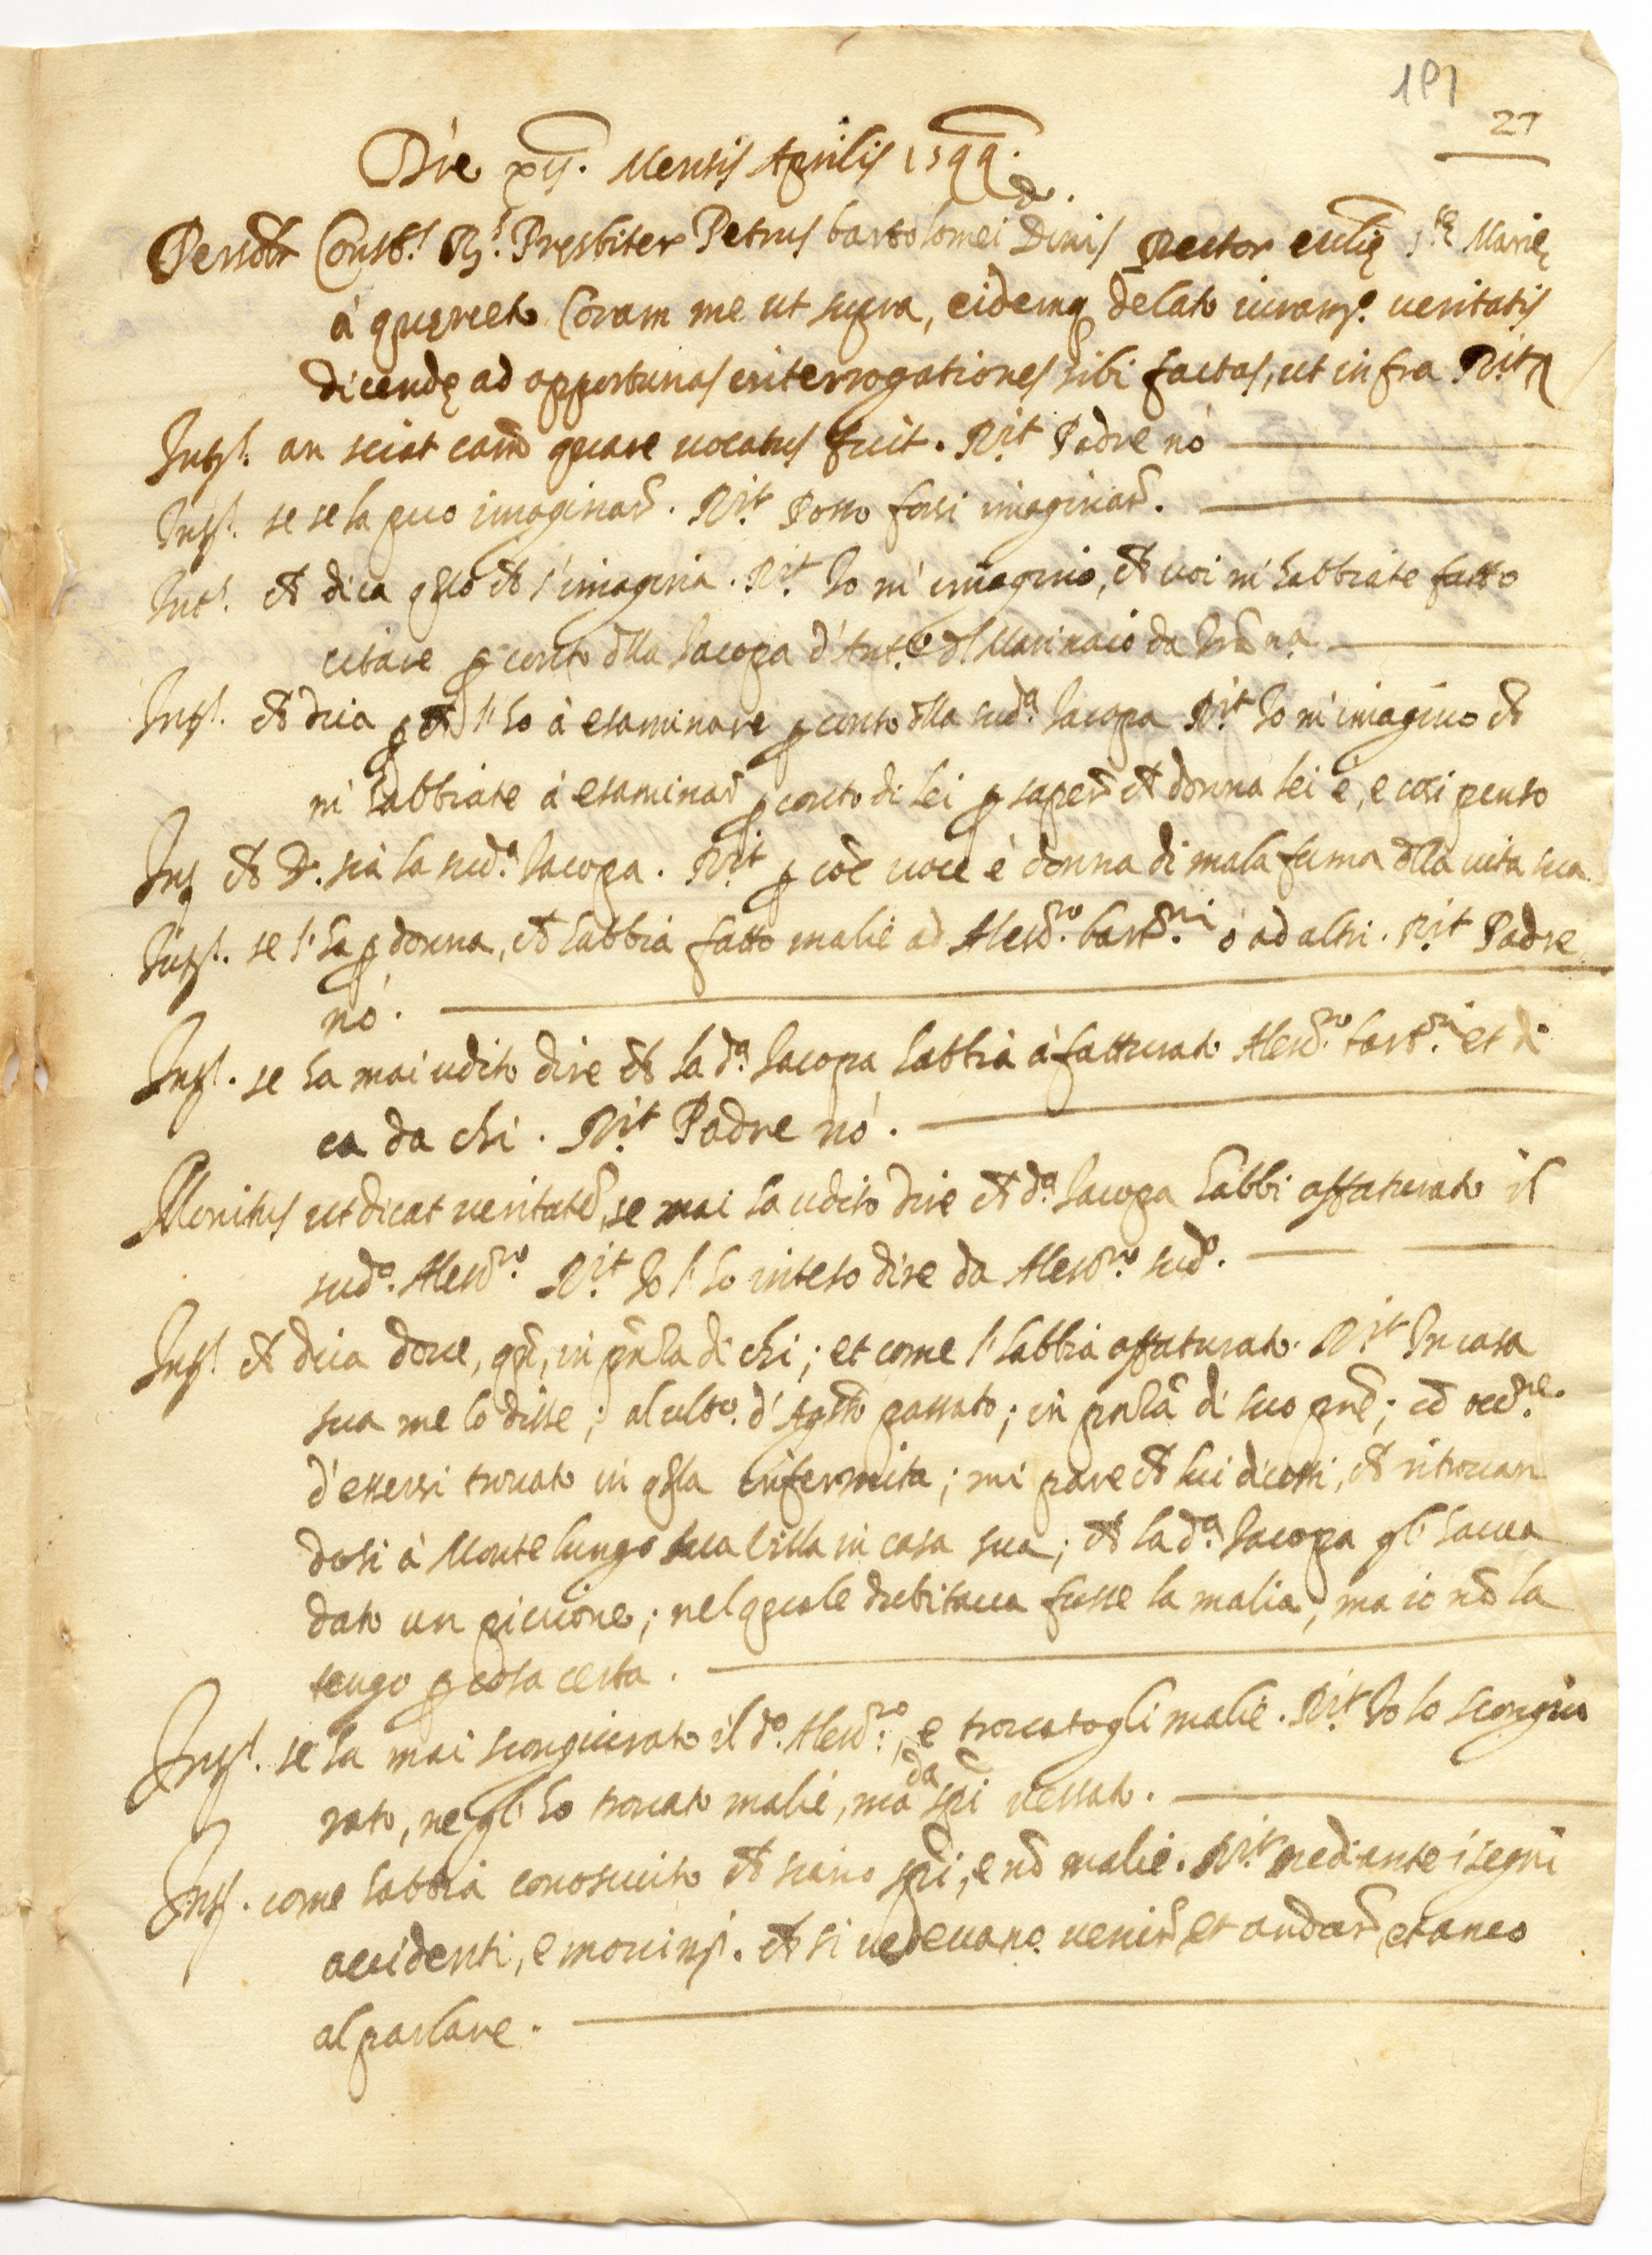 191
27
Die xij. Mensis Aprilis 1599.
Personr Consts. Rs. Presbiter Petrus bartolomei Dinis Rector ecclię Stę Marię
à querceto Coram me ut supra, eidemq delato iuramto. veritatis
dicendę ad opportunas interrogationes sibi factas, ut infra Rit
Ints. an sciat cam quare vocatus fuit. Rit Padre nò
Ints. se se la puo imaginar. Rit Posso forsi imaginar.
Ints. ch dica qllo ch s'imagina. Rit Io m'imagino, ch voi m'habbiate fatto
citare p conto dlla Iacopa d'Anto dl Marinaio da
Ints. ch dica p ch l'ho à esaminare p conto dlla suda. Iacopa Rit Io m'imagino ch
m'habbiate à esaminar p conto di lei p saper ch donna lei è, e cosi penso
Int ch Da. sia la suda. Iacopa. Rit p coe voce è donna di mala fama dlla vita sua.
Ints. se l'ha p donna, ch habbia fatto malie ad Alesro. bartni. ò ad altri. Rit Padre
nò.
Ints. se ha mai udito dire ch la da. Iacopa habbia affatturato Alesro. bartni. et di
ca da chi. Rit Padre nò.
Monitus ut dicat veritate, se mai ha udito dire ch da. Iacopa habbi affaturato il
sudo. Alesro. Rit Io l'ho inteso dire da Alesro. sudo.
Ints. ch dica dove, qn, in pnza di chi; et come l'habbia affaturato. Rit In casa
sua me lo disse; al ulto. d'Agto passato; in pnza di suo pre; co occne.
d'essersi trovato in qsta infermita; mi pare ch lui dicessi, ch ritrovan
dosi à Monte lungo sua villa in casa sua; ch la da. Iacopa gl' haveva
dato un piccione; nel quale dubitava fusse la malia, ma io no la
tengo p cosa certa.
Ints. se ha mai scongiurato il do. Alesro., e trovatogli malie. Rit Io lo scongiu
rato, ne gl' ho trovato malie, ma da spi vessato.
Ints. come habbia conosciuto ch siano spi, e no malie. Rit mediante i segni
accidenti, e movimti. ch si vedevano venir et andar, et anco
al parlare.